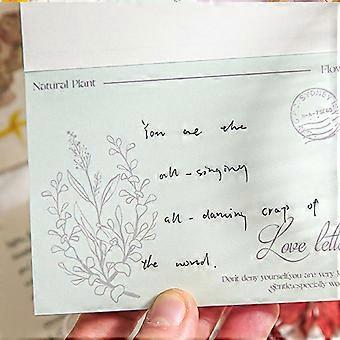 Natural Plant
SYDNEY
You are the
all-singing
all-dancing crap of
the world.
Love lette
Don't deny yourself,you are very
gentle,especially